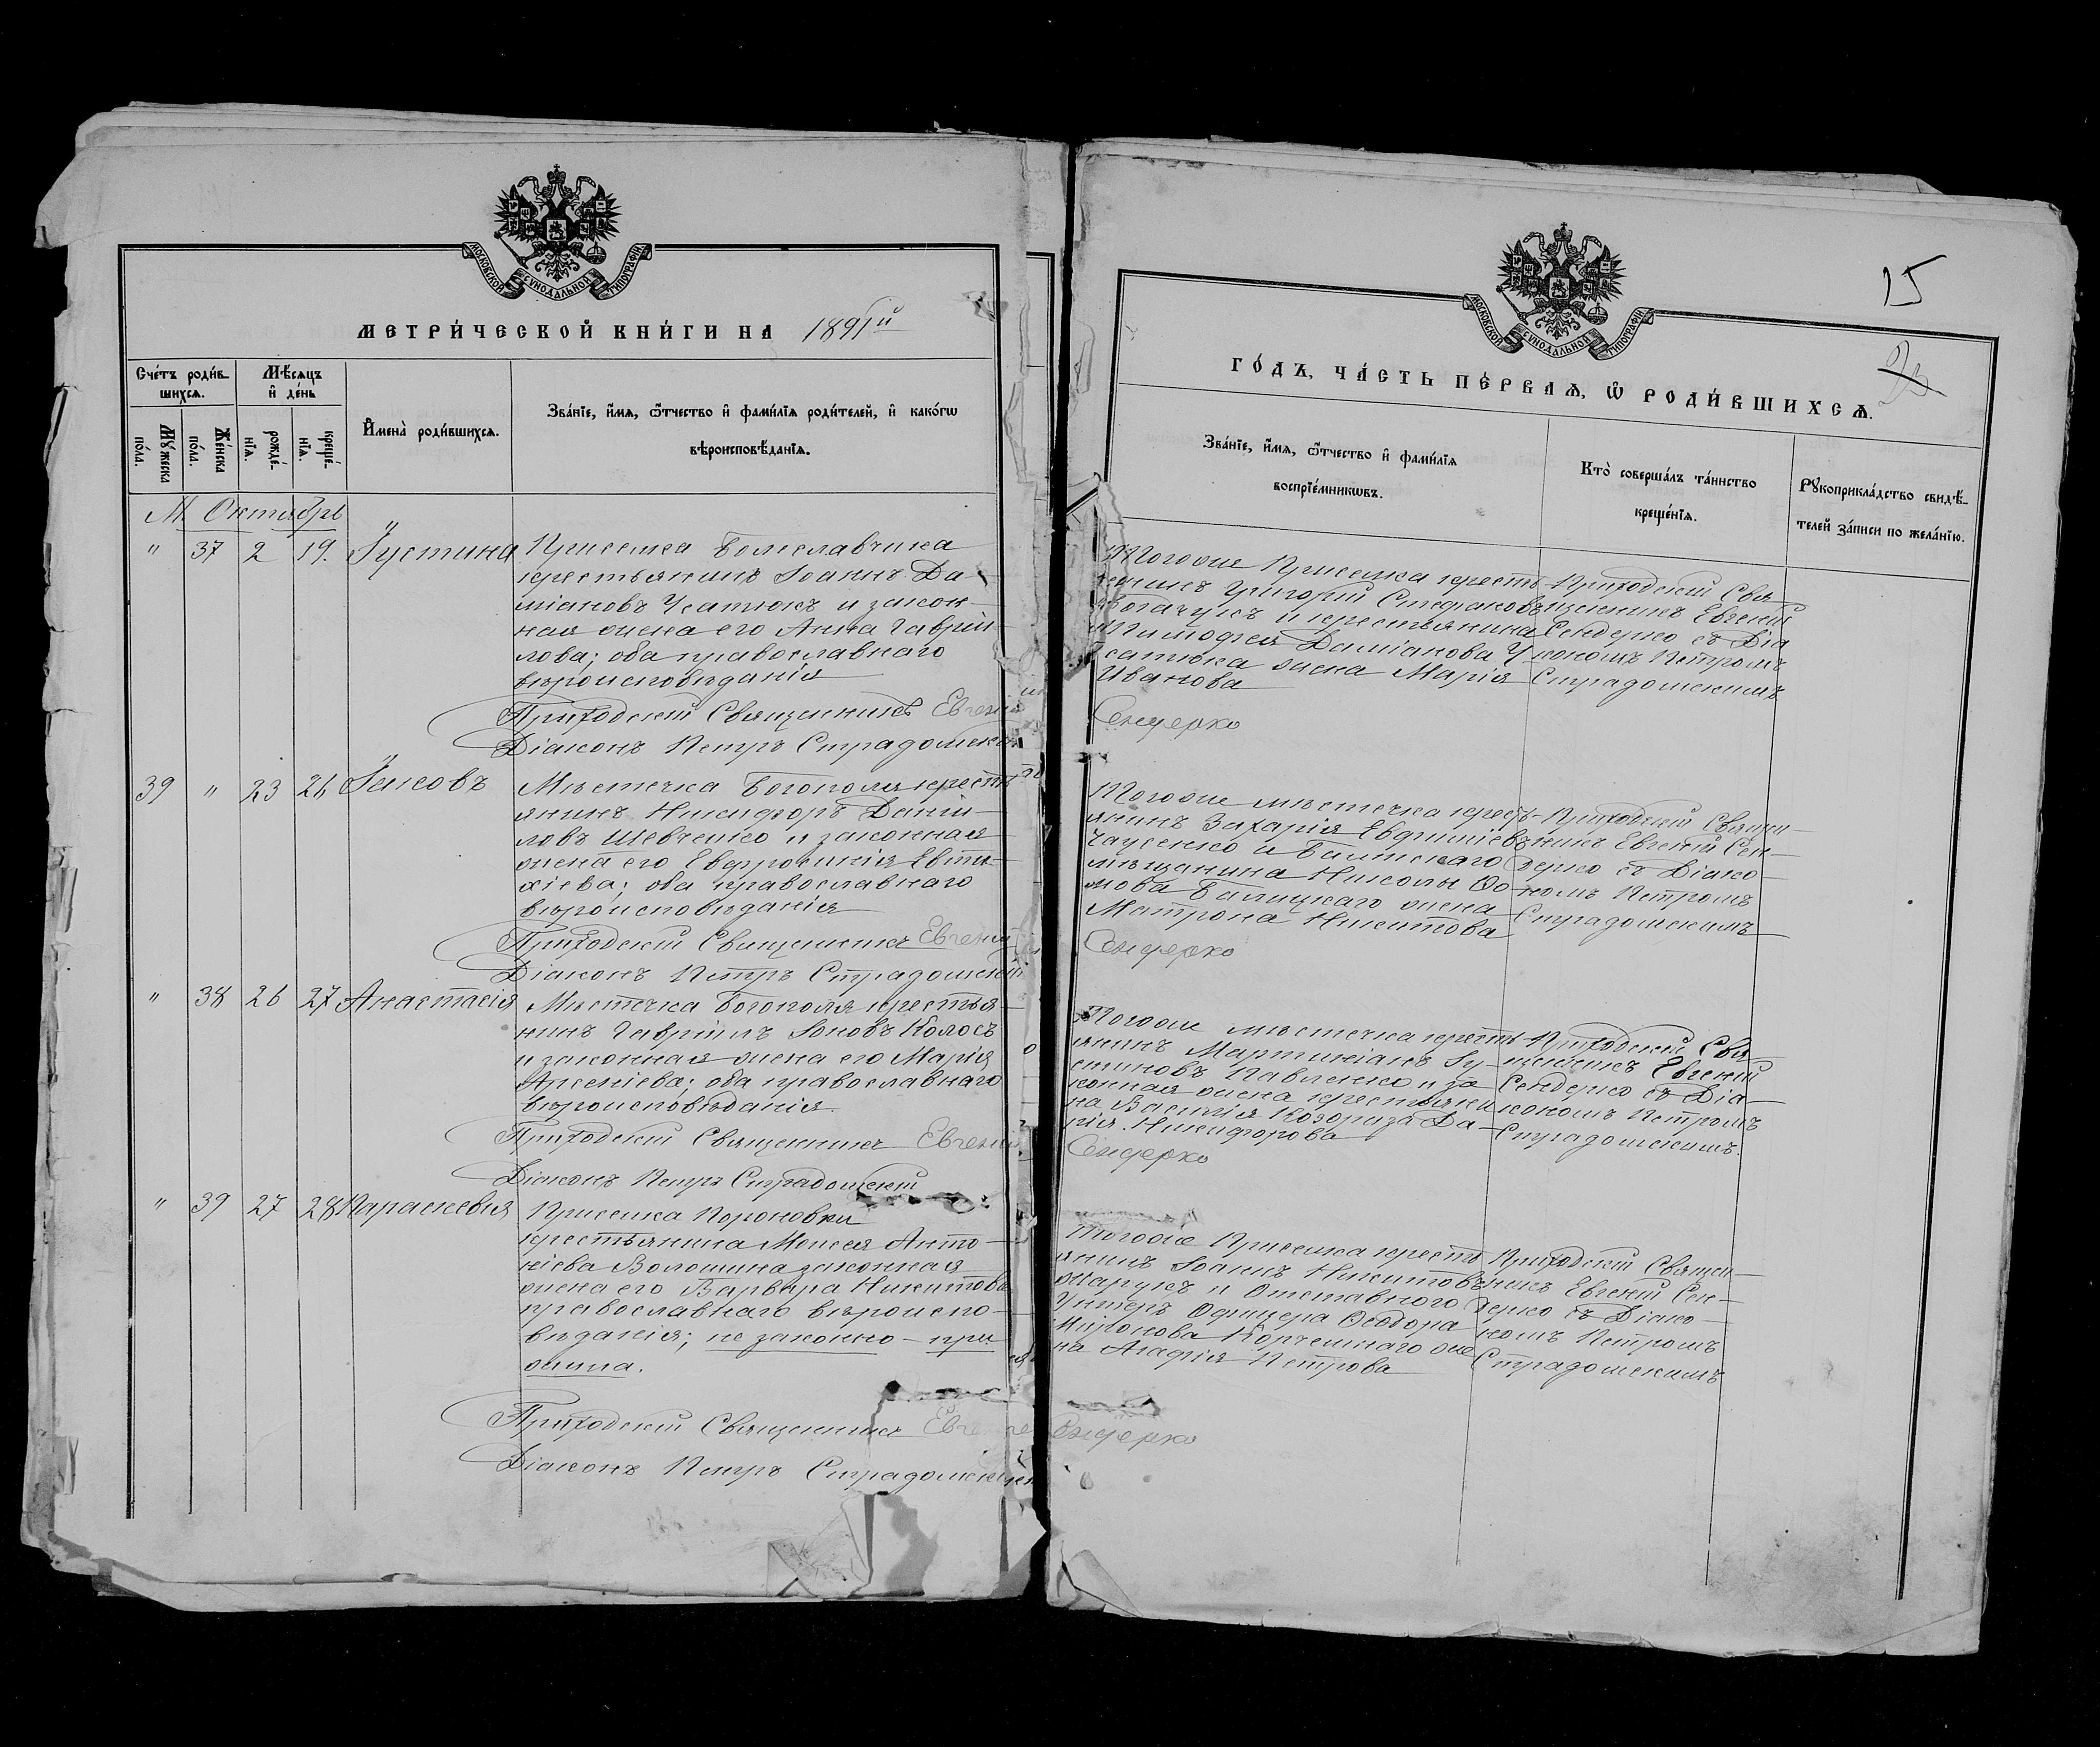 МОСКОВСКОЙ СѴНОДАЛЬНОЙ ТИПОГРАФІИ
МЕТРИ́ЧЕСКОЙ КНИ́ГИ НА 1891й
Сче́тъ роди́в-
шихся.
Мѣ́сяцъ
и҆ де́нь
Мꙋ́жеска
по́ла.
Же́нска
по́ла.
рожде́-
нїя.
креще́-
нїя.
И҆мена̀ роди́вшихся.
Зва́нїе, и҆́мя, ѻ҆́тчество и҆ фами́лїя роди́телей, и҆ како́гѡ
вѣроисповѣ́данїя.
М. Октябрь
" 37 2 19. Іустина
Приселка Болеславчика
крестьянинъ Іоаннъ Да-
міановъ Усатюкъ и закон-
ная жена его Анна Гаврій-
лова; оба православнаго
вѣроисповѣданія
Приходскій Священникъ Евгеній
Діаконъ Петръ Страдомскій
39 " 23 26 Іаковъ
Мѣстечка Богополя кресть
янинъ Никифоръ Даніи-
ловъ Шевченко и законная
жена его Евфросинія Евти-
хіева; оба православнаго
вѣроисповѣданія
Приходскій Священникъ Евгеній
Діаконъ Петръ Страдомскій
" 38 26 27 Анастасія
Мѣстечка Богополя крестья-
нинъ Гавріилъ Іоновъ Колосъ
и законная жена его Марія
Арсеніева; оба православнаго
вѣроисповѣданія.
Приходскій Священникъ Евгеній
Діаконъ Петръ Страдомскій
" 39 27 28 Параскевія
Приселка Пороновки
крестьянина Моисея Анто-
ніева Волошина законная
жена его Варвара Никитова
православнаго вѣроиспо-
вѣданія; не законно-при
жила.
Приходскій Священникъ
Діаконъ Петръ Страдомскій
15
МОСКОВСКОЙ СѴНОДАЛЬНОЙ ТИПОГРАФІИ
ГО́ДЪ, ЧА́СТЬ ПЕ́РВАЯ, Ѡ҆ РОДИ́ВШИХСЯ.
Зва́нїе, и҆́мя, ѻ҆́тчество и҆ фами́лїя
воспрїе́мникѡвъ.
Кто̀ соверша́лъ та́инство
креще́нїя.
Рꙋкоприкла́дство свидѣ́-
телей за́писи по жела́нїю.
Тогоже Приселка кресть-
янинъ Григорій Стефановъ
Богачукъ и крестьянина
Тимофея Даміанова У
сатюка жена Марія
Иванова
Приходскій Свя-
щенникъ Евгеній
Сендерко съ Діа
кономъ Петромъ
Страдомскимъ
Сендерко
Тогоже мѣстечка кресть-
янинъ Захарія Евфиміевъ
Чаусенко и Балтскаго
мѣщанина Николы Ѳо-
мова Балицкаго жена
Матрона Никитова
Приходскій Священ-
никъ Евгеній Сен-
дерко съ Діако-
номъ Петромъ
Страдомскимъ
Сендерко
Тогоже мѣстечка кресть
янинъ Мартиніанъ Іу-
стиновъ Павленко и за
конная жена крестьяни
на Василія Козориза Да-
рія Никифорова
Приходскій Свя
щенникъ Евгеній
Сендерко съ Діа-
кономъ Петромъ
Страдомскимъ.
Сендерко
Тогоже Приселка кресть
янинъ Іоаннъ Никитовъ
и Отставного
Унтеръ Офицера Ѳеодора
Миронова Корчемнаго же
на Агафія Петрова
Приходскій Священ-
никъ Евгеній Сен-
дерко съ Діако-
номъ Петромъ
Страдомскимъ
Сендерко